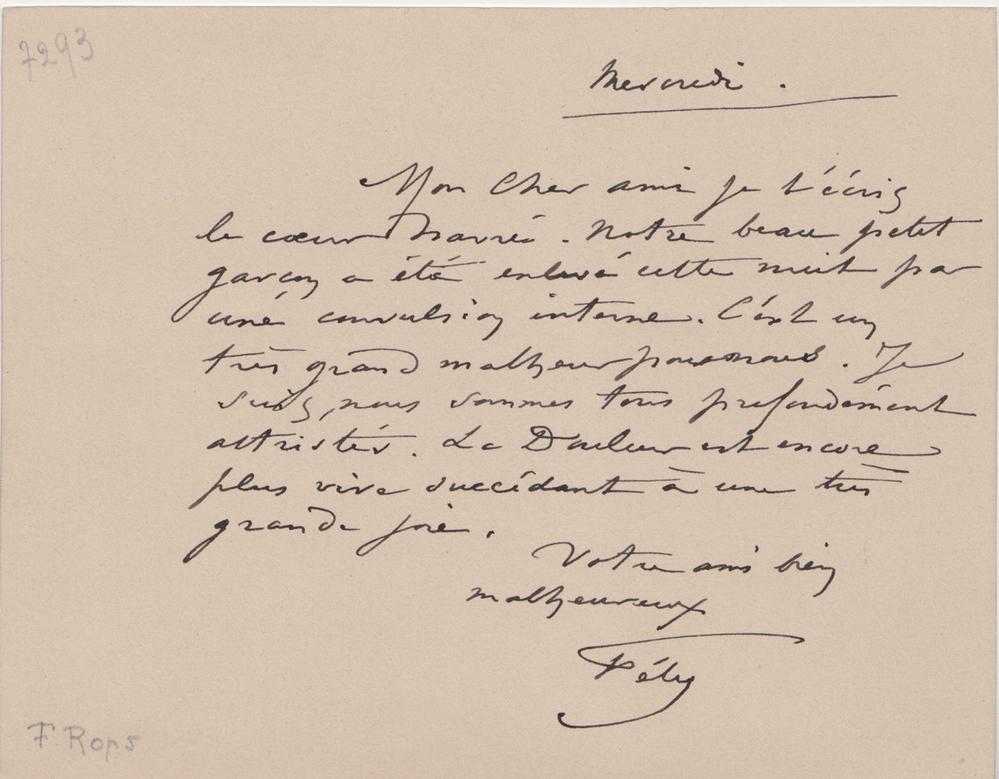 7293
Mercredi .
Mon Cher ami je t'écris
le cœur navré . Notre beau petit
garçon a été enlevé cette nuit par
une convulsion interne . C'est un
très grand malheur pour nous . Je
suis, nous sommes tous profondément
attristés . La Douleur est encore
plus vive succédant à une très
grande joie .
Votre ami bien
malheureux
Fély
F. Rops